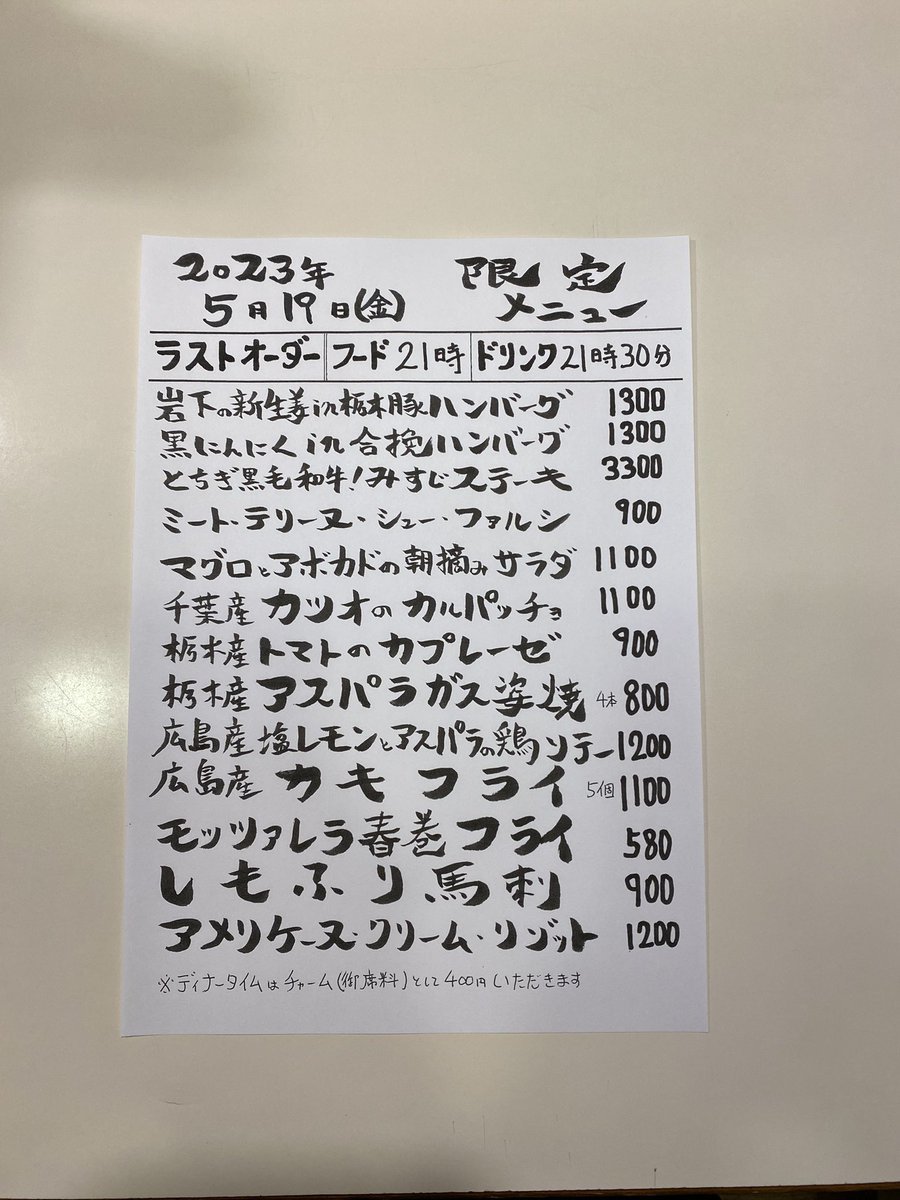 2023年
5月19日(金)
限定
メニュー
ラストオーダー フード21時 ドリンク21時30分
岩下の新生姜in栃木豚ハンバーグ 1300
黒にんにくin合挽ハンバーグ 1300
とちぎ黒毛和牛!みすじステーキ 3300
ミート・テリーヌ・シュー・ファルシ 900
マグロとアボカドの朝摘みサラダ 1100
千葉産 カツオのカルパッチョ 1100
栃木産トマトのカプレーゼ 900
栃木産アスパラガス姿焼 4本 800
広島産塩レモンとアスパラの鶏ソテー 1200
広島産 カキフライ 5個 1100
モッツァレラ春巻フライ 580
しもふり馬刺 900
アメリケーヌ・クリーム・リゾット 1200
※ディナータイムはチャーム(御席料)として400円いただきます